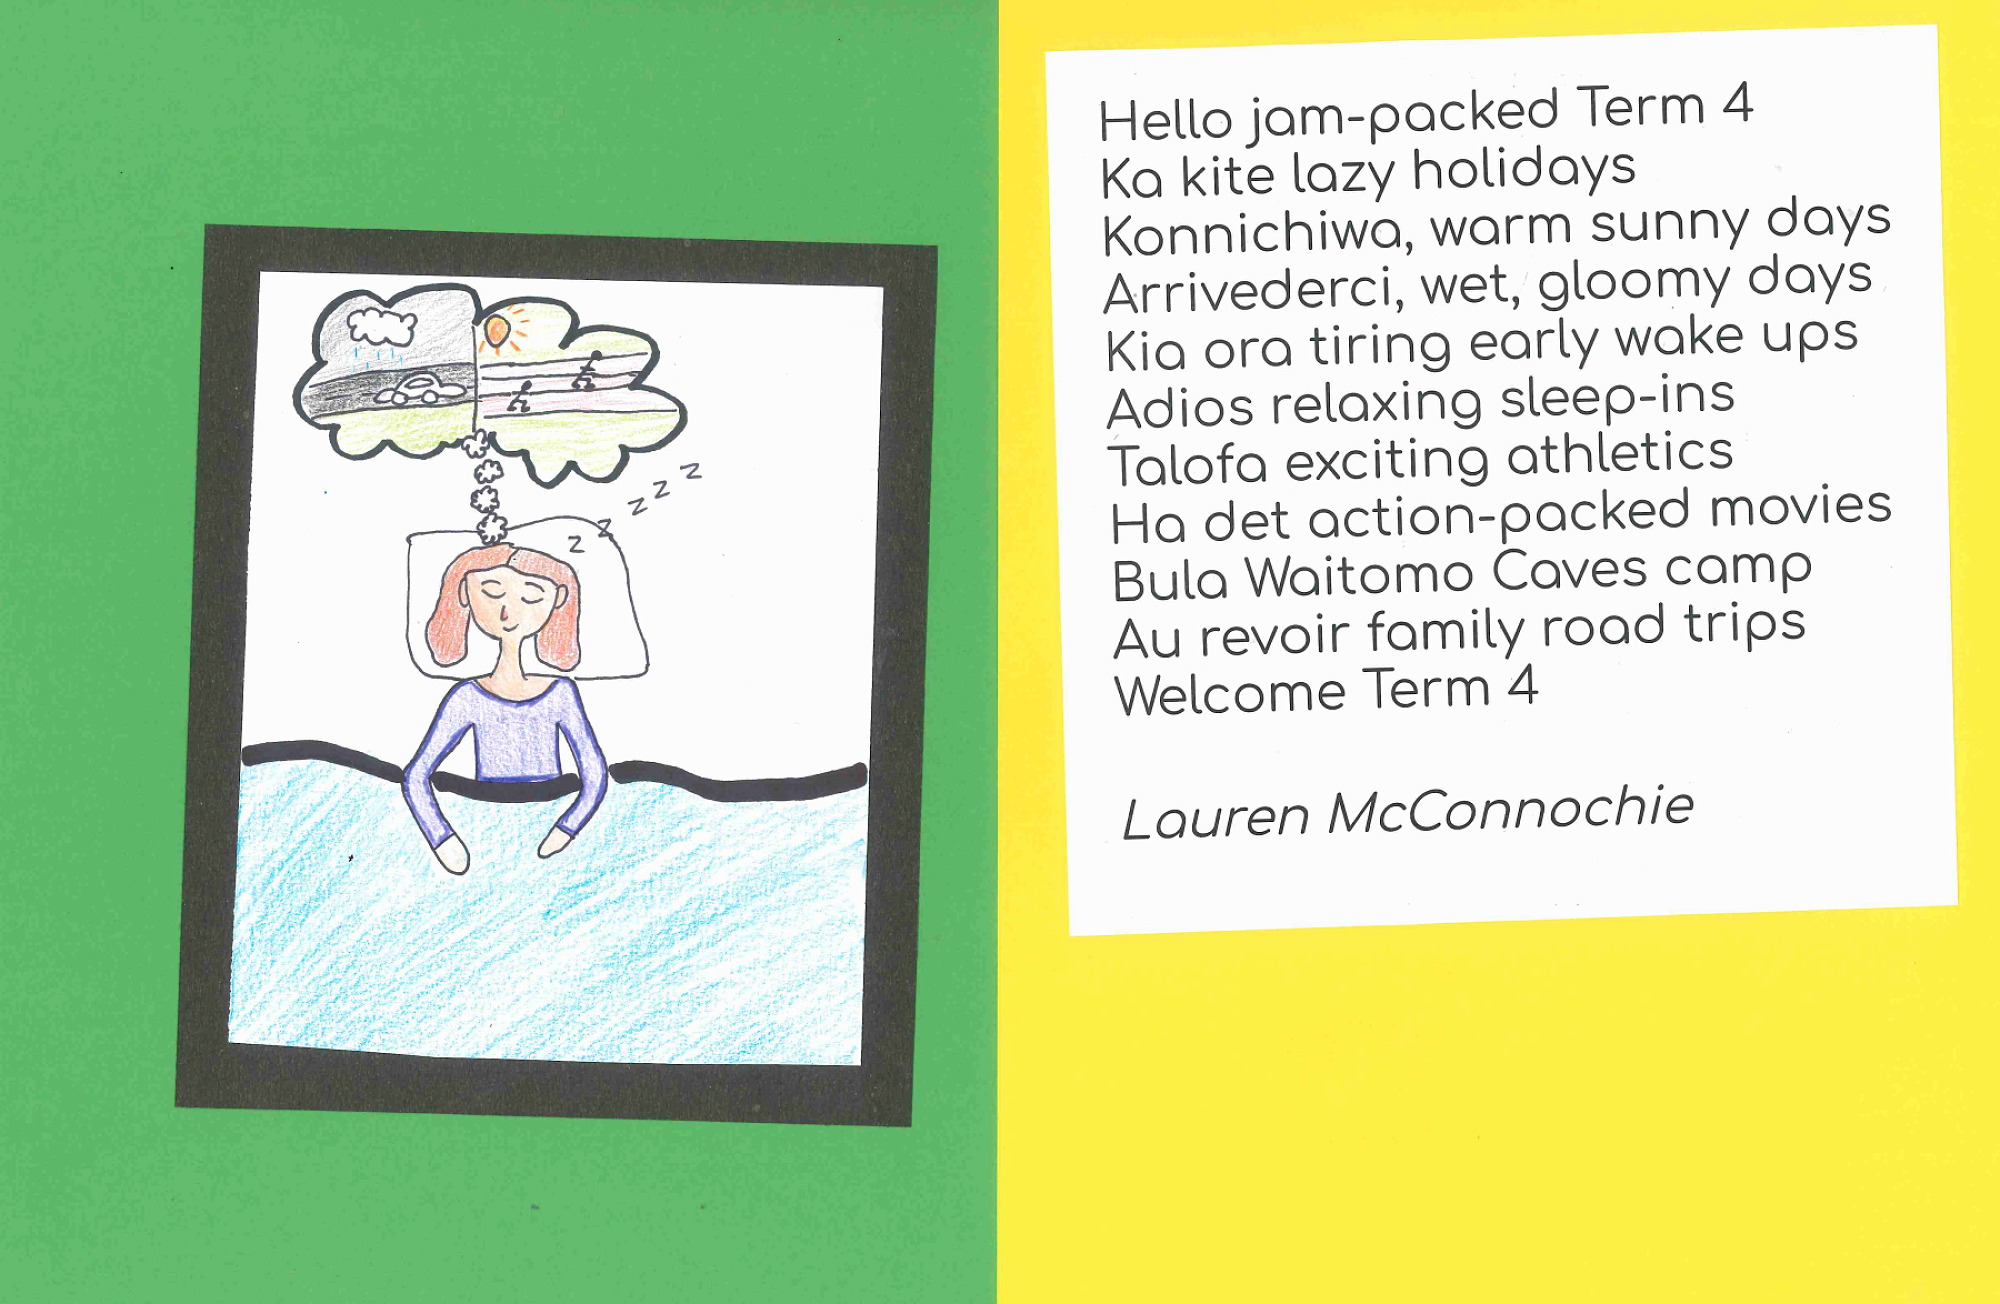 Hello jam-packed Term 4
Ka kite lazy holidays
Konnichiwa, warm sunny days
Arrivederci, wet, gloomy days
Kia ora tiring early wake ups
Adios relaxing sleep-ins
Talofa exciting athletics
Ha det action-packed movies
Bula Waitomo Caves camp
Au revoir family road trips
Welcome Term 4
Lauren McConnochie
z z z z z